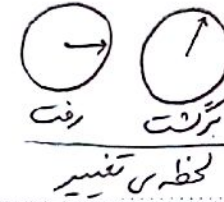 رفت برگشت
لحظه‌ی تغییر